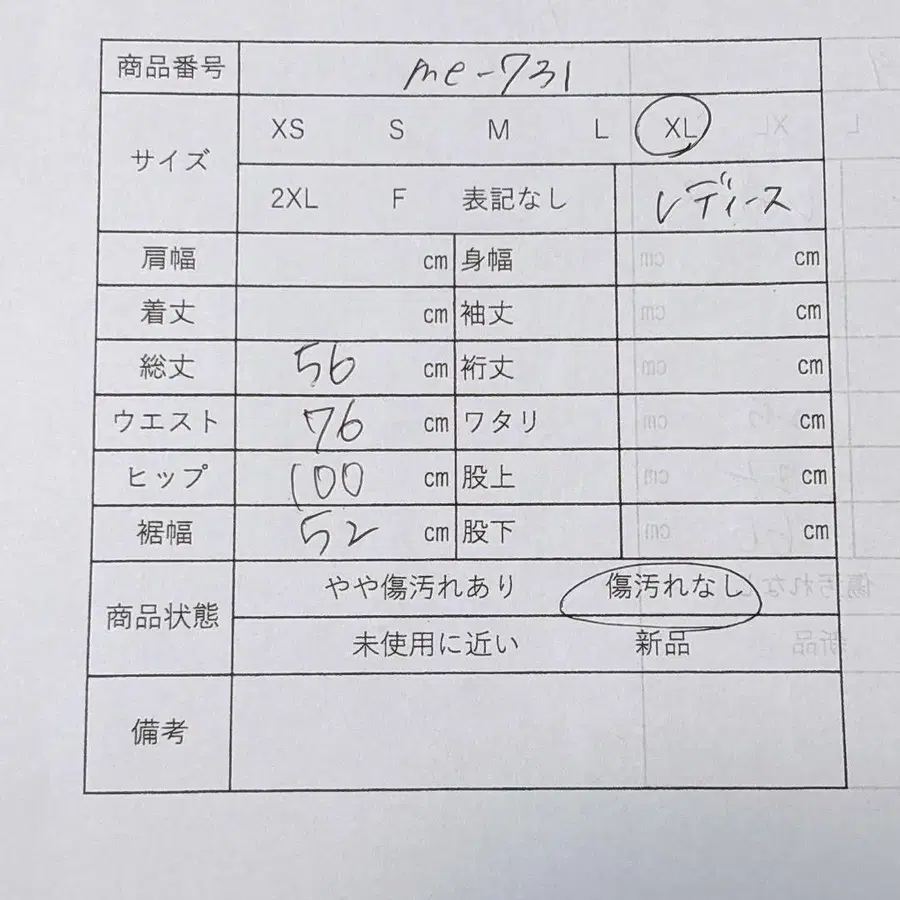 商品番号 me-731
サイズ XS S M L XL
2XL F 表記なし レディース
肩幅 cm 身幅 cm
着丈 cm 袖丈 cm
総丈 56 cm 裄丈 cm
ウエスト 76 cm ワタリ cm
ヒップ 100 cm 股上 cm
裾幅 52 cm 股下 cm
商品状態 やや傷汚れあり 傷汚れなし
未使用に近い 新品
備考